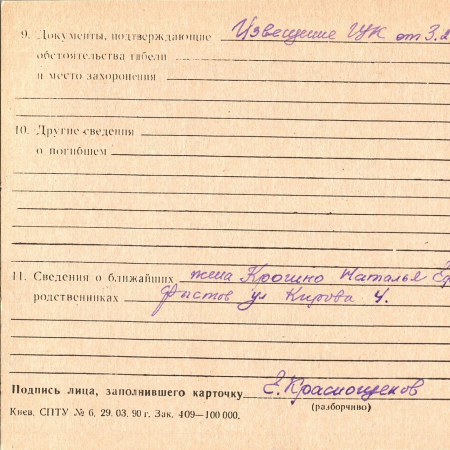 9. Документы, подтверждающие Извещение ГУК от 3.2
обстоятельства гибели
и место захоронения
10. Другие сведения
о погибшем
11. Сведения о ближайших жена Крошно Наталья
родственниках Фастов ул Кирова 4.
Подпись лица, заполнившего карточку Е. Краснощеков
(разборчиво)
Киев, СПТУ № 6, 29. 03. 90 г. Зак. 409—100 000.